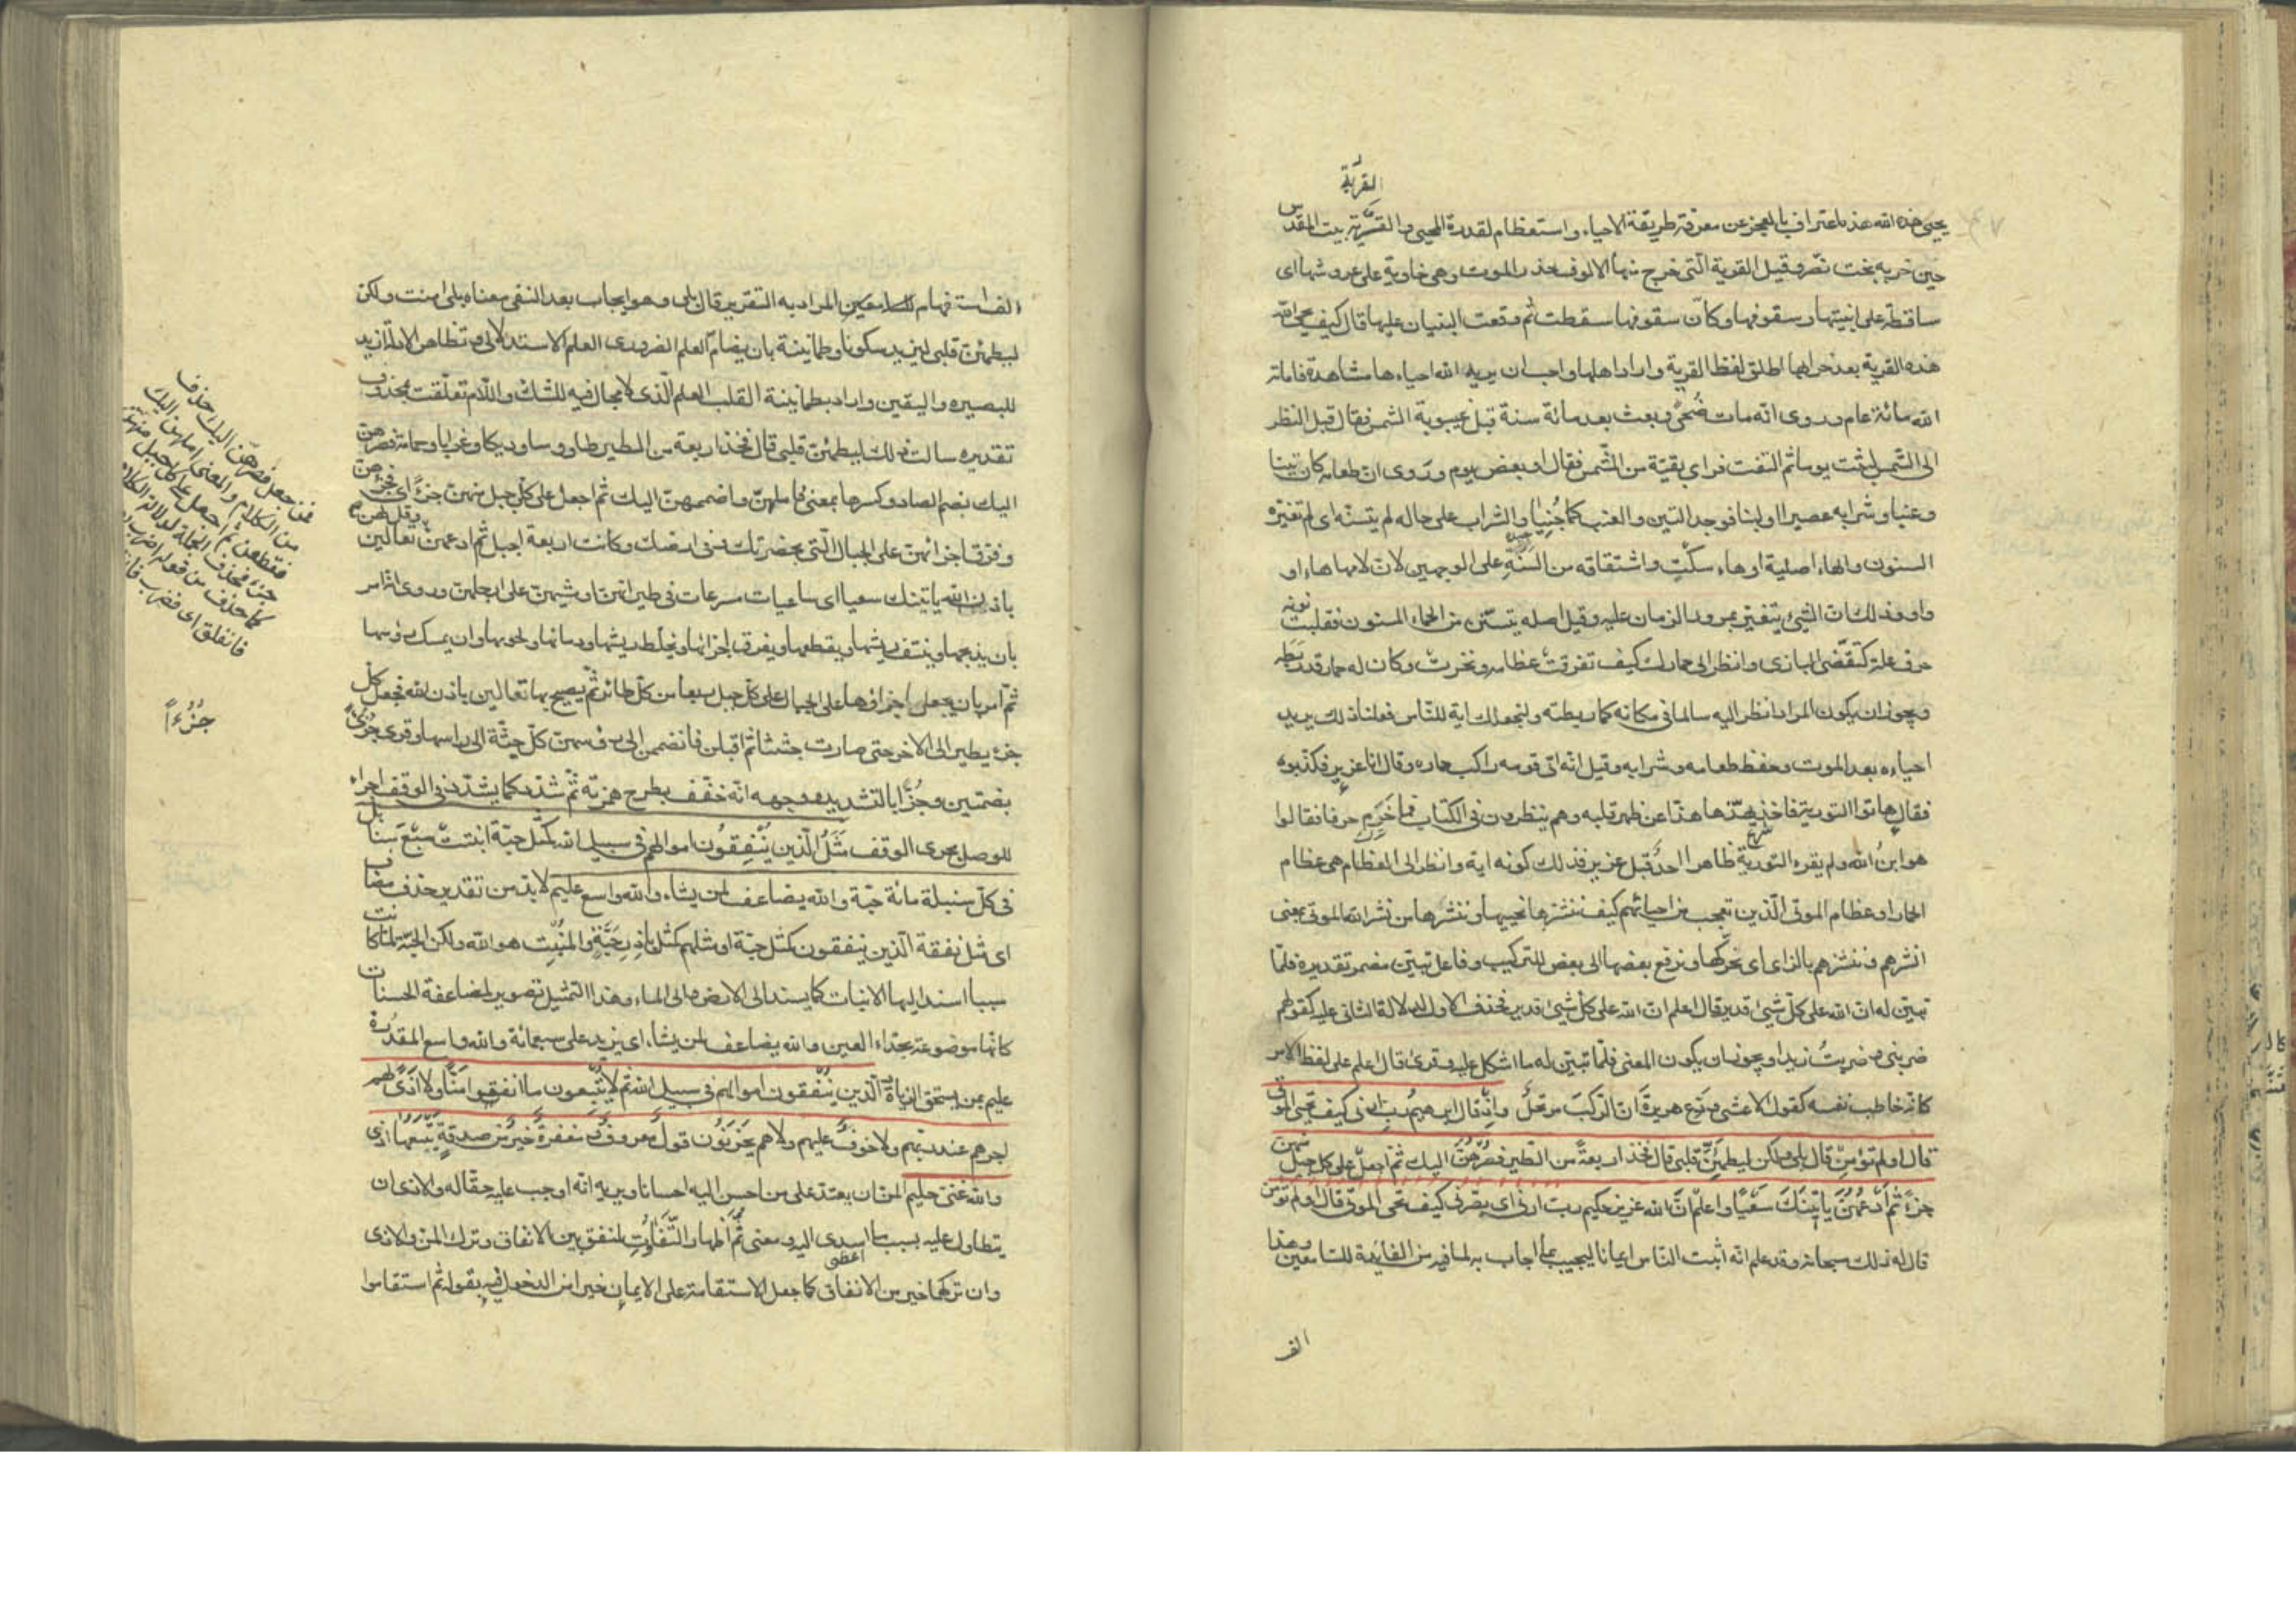 القرية
يحيي هذه الله هذا اعتراف بالعجز عن معرفة طريقة الاحياء واستعظام لقدرة المحيى والقرية بيت المقدس
حين خربه بخت نصر وقيل القرية الّتى خرج منها الالوف حذر الموت وهى خاوية على عروشها اى
ساقطة على ابنيتها وسقوفها وكأنّ سقوفها سقطت ثم وقعت البنيان عليها قال كيف يحيى الله
هذه القرية بعد خرابها اطلق لفظ القرية واراد اهلها واحب ان يريه الله احياءها مشاهدة فاماته
الله مائة عام وروى انه مات ضُحىً وبعث بعد مائة سنة قبل غيبوبة الشمس فقال قبل النظر
الى الشمس لبثت يوما ثم التفت فراى بقيّة من الشمس فقال او بعض يوم وروى ان طعامه كان تينا
وعنبا وشرابه عصيرا او لبنا فوجد التين والعنب كما جُنِيا والشراب على حاله لم يتسنّه اى لم تغيّره
السنون والهاء اصلية او هاء سكت واشتقاقه من السَنَةِ على الوجهين لانّ لامها هاء او
واو وذلك انّ الشيئ يتغيّر بمرور الزمان عليه وقيل اصله يتسنّن من الحماء المسنون فقلبت نونه
حرف علة كتقضّى البازى وانظر الى حمارك كيف تفرقت عظامه ونخرت وكان له حمار قد ربطه
ويجوز ان يكون المراد انظر اليه سالما فى مكانه كما ربطته ولنجعلك اية للنّاس فعلنا ذلك يريد
احياءه بعد الموت وحفظ طعامه وشرابه وقيل انّه اتى قومه راكب حماره وقال انا عزير فكذبوه
فقال هاتوا التورية فاخذ يهذّها هذّا عن ظهر قلبه وهم ينظرون فى الكتاب فما خَرَم حرفا فقالوا
هو ابنُ الله ولم يقرء التورية ظاهرا احدٌ قبل عزير فذلك كونه اية وانظر الى العظام هى عظام
الحمار او عظام الموتى الّذين تعجب من احيائهم كيف ننشزها نحييها وننشرها من نشر الله الموتى بمعنى
انشرهم وننشزهم بالزاى اى نحرّكها ونرفع بعضها الى بعض للتركيب وفاعل تبيّن مضمر تقديره فلمّا
تبيّن له ان الله على كلّ شيئ قدير قال اعلم انّ الله على كلّ شيئ قدير فحذف الاول لدلالة الثانى عليه كقولهم
ضربنى وضربتُ زيدا ويجوز ان يكون المعنى فلمّا تبيّن له ما اشكل عليه وقرئ قال اعلم على لفظ الامر
كانه خاطب نفسه كقول الاعشى ودّع هريرةَ انّ الركبَ مرتحلُ واذ قال ابرهيم ربّ ارنى كيف تحيى الموتى
قال اولم تؤمن قال بلى ولكن ليطمئنّ قلبى قال فخذ اربعةً من الطير فصُرْهُنّ اليك ثم اجعل على كل جبل منهن
جزءً ثم ادعُهُنّ يأتينَك سَعْيًا واعلم انّ الله عزيز حكيم ربّ ارنى اى بصّرنى كيف تحى الموتى قال اولم تؤمن
قال له ذلك سبحانه وقد علم انّه اثبت النّاس ايمانا ليجيب بما اجاب به لما فيه من الفائدة للسّامعين وهذا
الف
الف استفهام المراد به التقرير قال بلى وهو ايجاب بعد النفى معناه بلى امنت ولكن
ليطمئنّ قلبى ليزيد سكونا وطمانينة بان يضامّ العلم الضرورى العلم الاستدلالى وتظاهر الادلة ازيد
للبصيرة واليقين واراد بطمانينة القلب العلم الّذى لا مجال فيه للشكّ واللّام تعلّقت بمحذوف
تقديره سالت ذلك ليطمئنّ قلبى قال فخذ اربعة من الطير طاووسا وديكا وغرابا وحمامة فصرهن
اليك بضم الصاد وكسرها بمعنى فاملهنّ واضممهنّ اليك ثم اجعل على كلّ جبل منهنّ جزءً اى فجزّئهن
وقل لهن
وفرّق اجزائهنّ على الجبال الّتى بحضرتك وفى ارضك وكانت اربعة اجبل ثم ادعهنّ تعالين
باذن الله ياتينك سعيا اى ساعيات مسرعات فى طيرانهنّ او مشيهنّ على ارجلهنّ وروى انه امر
بان يذبحها وينتف ريشها ويقطعها ويفرق اجزائها ويخلط ريشها ودمائها ولحومها وان يمسك رؤسها
ثمّ امر بان يجعل اجزاؤها على الجبال على كلّ جبل ربعا من كلّ طائر ثمّ يصيح بها تعالين باذن الله فجعل كلّ
جزء يطير الى الاخر حتى صارت جثثا ثم اقبلن فانضممن الى رؤسهنّ كلّ جثّة الى راسها وقرئ جُزُءً
بضمتين وجُزًّا بالتشديد ووجهه انّه خفّف بطرح همزته ثمّ شدّد كما يشدّد فى الوقف اجراء
للوصل مجرى الوقف مَثَلُ الّذين يُنْفِقُون اموالهم فى سبيل الله كمثل حبّة انبتت سَبْعَ سنابل
فى كلّ سنبلة مائة حبّة والله يضاعف لمن يشاء والله واسع عليم لابدّ من تقدير حذف مضاف
اى مثل نفقة الّذين ينفقون كمثل حبّة او مثلهم كمثل باذر حَبَّةٍ والمُنْبِت هو الله ولكن الحبّة لمّا كانت
سببا اسند اليها الانبات كما يسند الى الارض والى الماء وهذا التمثيل تصوير لمضاعفة الحسنات
كانّها موضوعة بحذاء العين والله يضاعف لمن يشاء اى يزيد على سبعمائة والله واسع المقدرة
عليم بمن يستحق الزيادة الّذين يُنْفقون اموالهم فى سبيل الله ثم لا يُتْبِعون ما انفقوا مَنًّا ولا اَذًى لهم
اجرهم عند ربّهم ولا خوفٌ عليهم ولا هم يحزنون قولٌ معروفٌ ومغفرةٌ خيرٌ من صدقةٍ يَتْبَعُها اذى
والله غنىّ حليم المنّ ان يعتدّ على من احسن اليه احسانا ويريه انّه اوجب عليه حقا له والاذى ان
يتطاول عليه بسبب ما اسدى اليه ومعنى ثُمَّ اظهار التَّفَاوُتِ للمنفق بين الانفاق وترك المنّ والاذى
اعظى
وان تركها خير من الانفاق كما جعل الاستقامة على الايمان خيرا من الدخول فيه بقوله ثم استقاموا
فمن جعل فصرهنّ اليك حذف
من الكلام والمعنى املهن اليك
فقطعهن ثم اجعل على كل جبل منهن
جزءً فحذف الجملة لدلالة الكلام
كما حذف من قوله اضرب
فانفلق اى فضرب
جُزُءاً